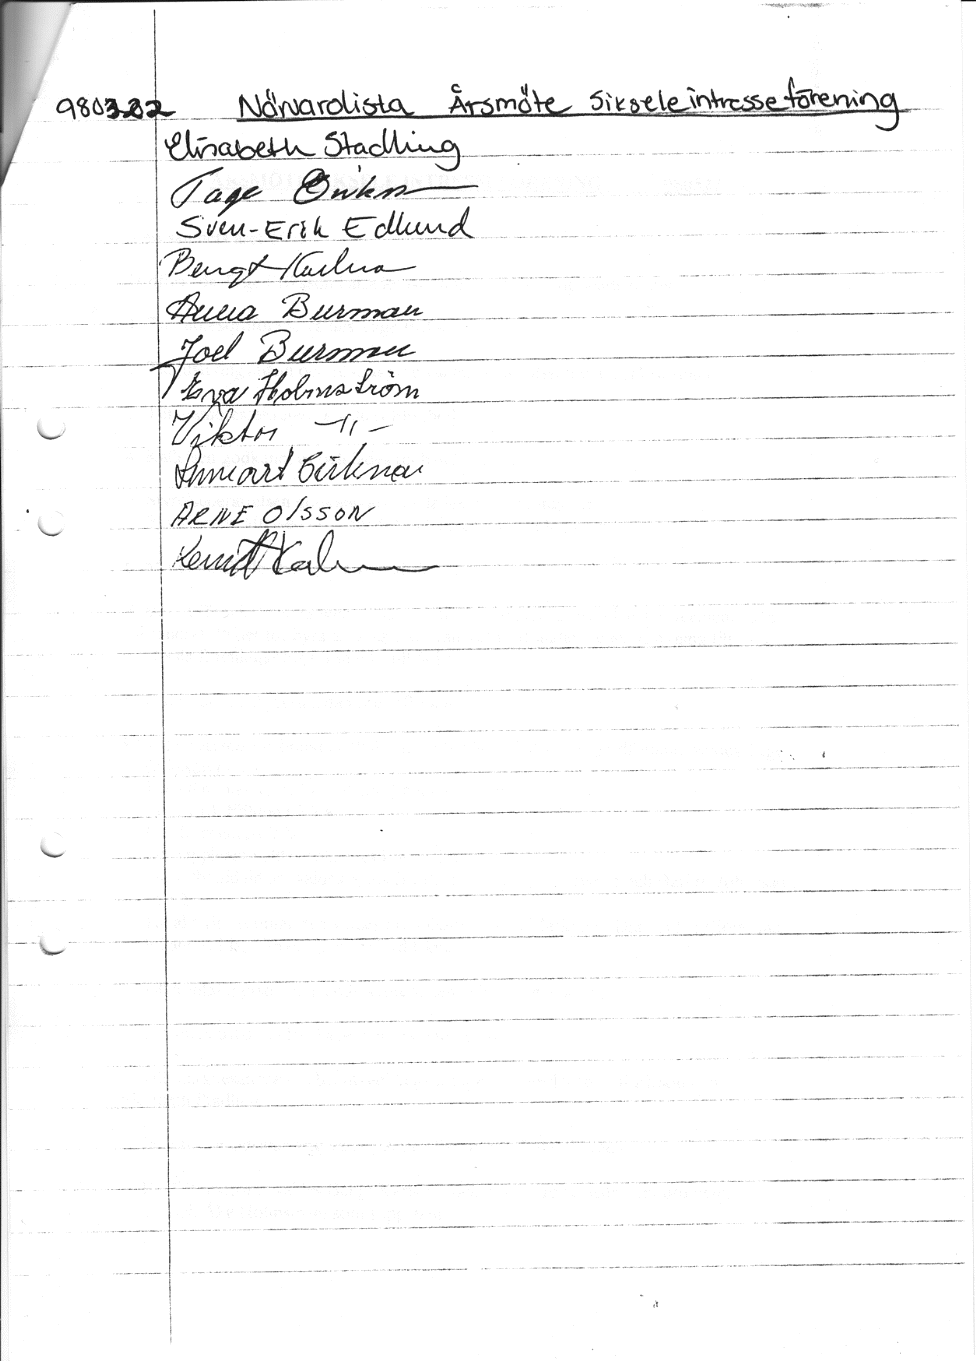 980322 Närvarolista Årsmöte Siksele intresseförening
Elisabeth Stadling
Tage
Sven-Erik Edlund
Bengt
Anna Burman
Joel Burman
Eva Holmström
Viktor -11-
Lennart
ARNE OLSSON